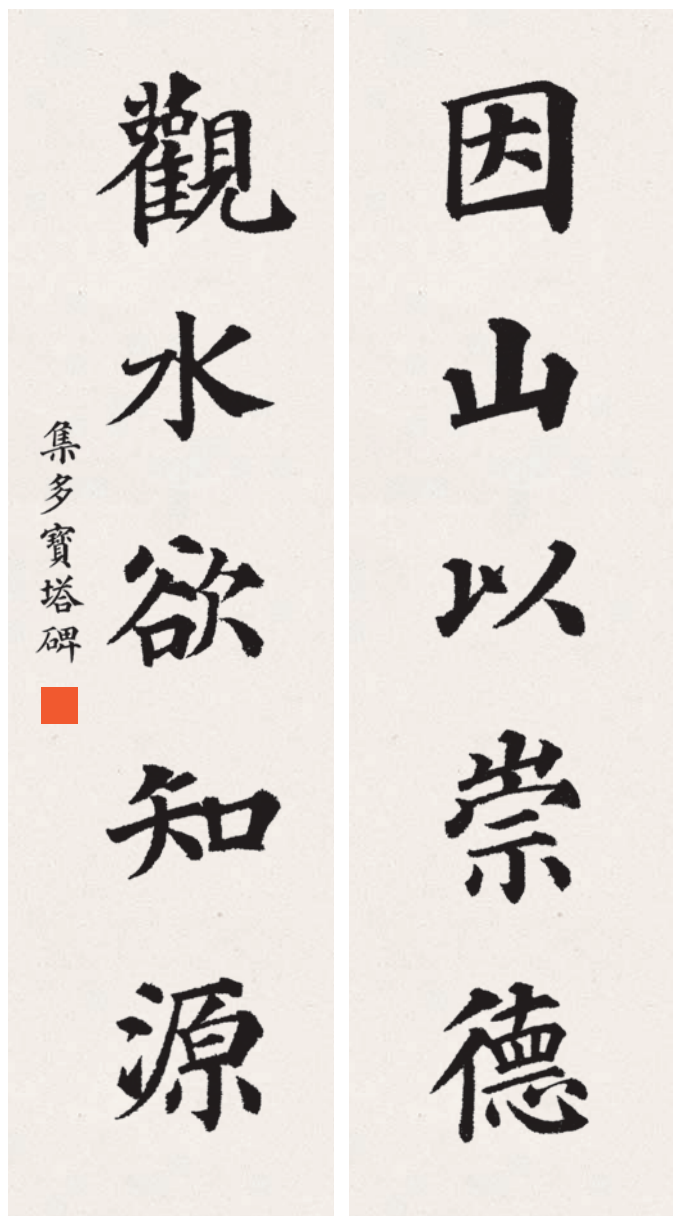 因山以崇德
觀水欲知源
集多寶塔碑